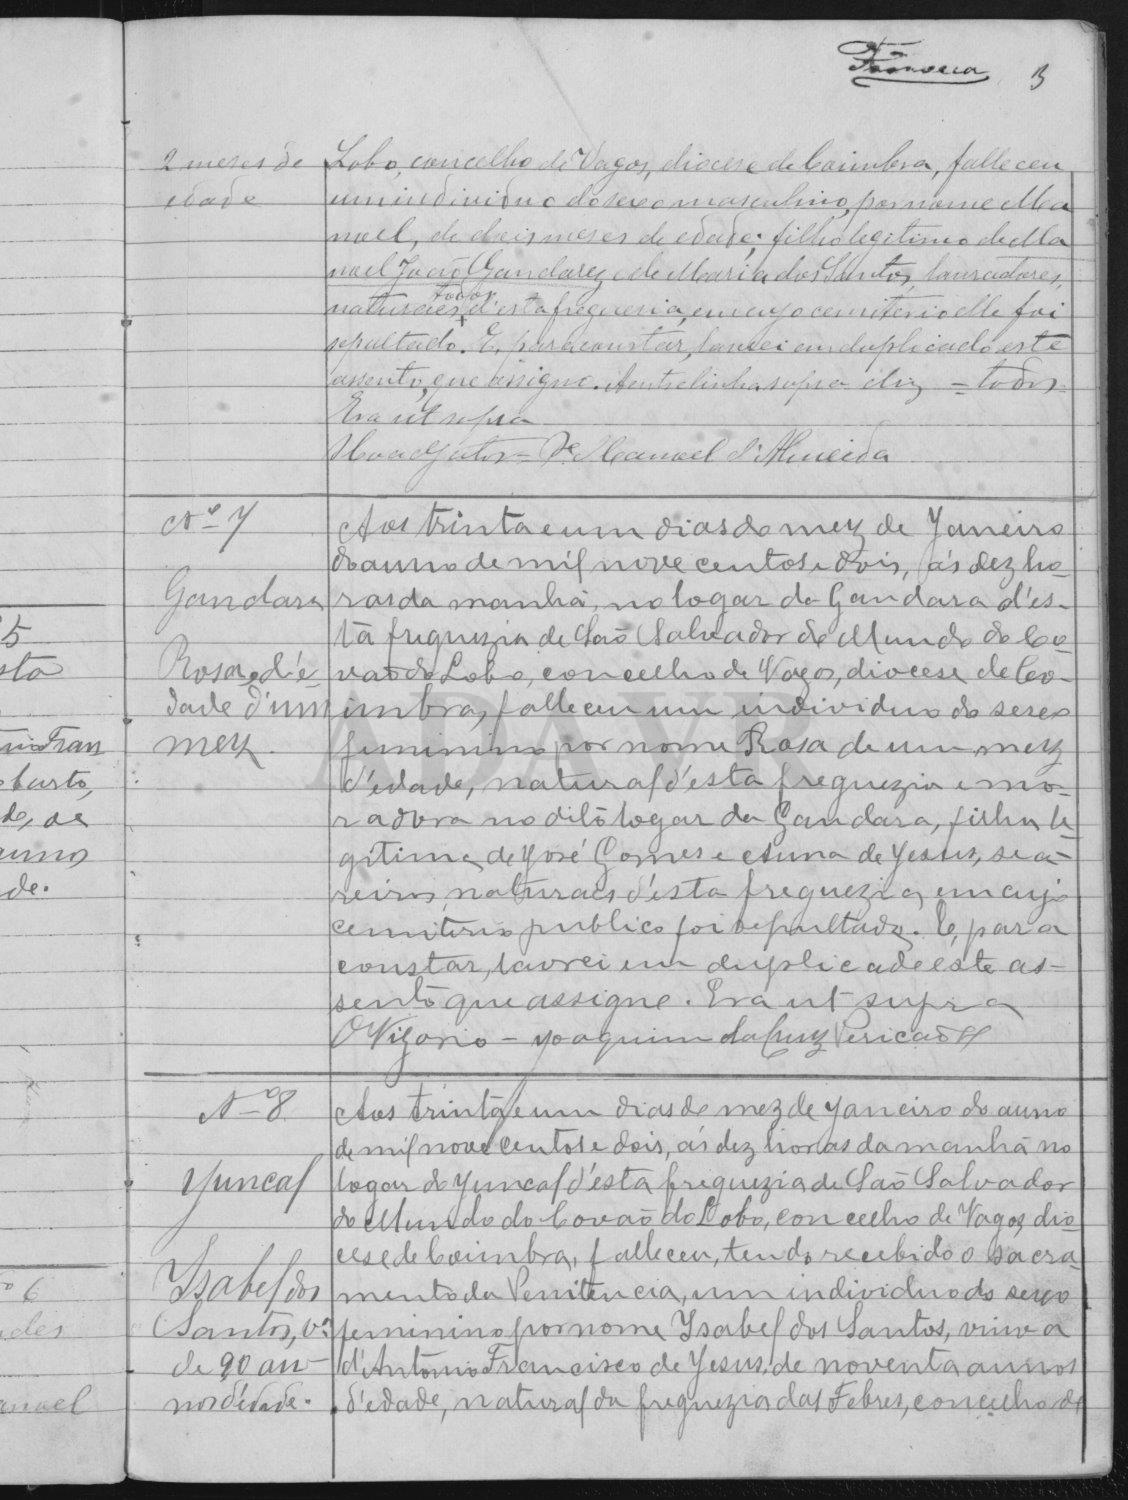 Fonseca 3
2 meses de
edade
Lobo, concelho de Vagos, diocese de Coimbra, falleceu
um individuo do sexo masculino, por nome Ma
noel, de dois meses de edade; filho legitimo de Ma
noel João Gandarez e de Maria dos Santos, lavradores,
todos
naturaes d'esta freguesia, em cujo cemiterio elle foi
sepultado. E, para constar, lavrei em duplicado este
assento, que assigno. A entrelinha supra diz = todos =
Era ut supra
Manoel d'Almeida
Nº 7
Gandara
Rosa, d'e-
dade d'um
mez.
Aos trinta e um dias do mez de Janeiro
do anno de mil nove centos e dois, ás dez ho-
ras da manhã, no logar da Gandara d'es-
ta freguezia de São Salvador do Mundo do Co-
vão do Lobo, concelho de Vagos, diocese de Co-
imbra, falleceu um individuo do sexo
feminino por nome Rosa de um mez
d'edade, natural d'esta freguezia e mo-
radora no dito logar da Gandara, filha le-
gitima de José Gomes e Anna de Jesus, sea-
reiros, naturaes d'esta freguezia, em cujo
cemiterio publico foi sepultada. E, para
constar, lavrei em duplicado este as-
sento que assigno. Era ut supra
O Vigario - Joaquim da Cruz Pericão
Nº 8
Juncal
Isabel dos
Santos, vª
de 90 an-
nos d'edade.
Aos trinta e um dias do mez de Janeiro do anno
de mil nove centos e dois, ás dez horas da manhã no
logar do Juncal d'esta freguezia de São Salvador
do Mundo do Covão do Lobo, concelho de Vagos, dio-
cese de Coimbra, falleceu, tendo recebido o sacra-
mento da Penitencia, um individuo do sexo
feminino por nome Isabel dos Santos, viuva
d'Antonio Francisco de Jesus, de noventa annos
d'edade, natural da freguezia das Febres, concelho de
5
sta
Fran
de, de
annos
de.
6
anoel
ADAVR